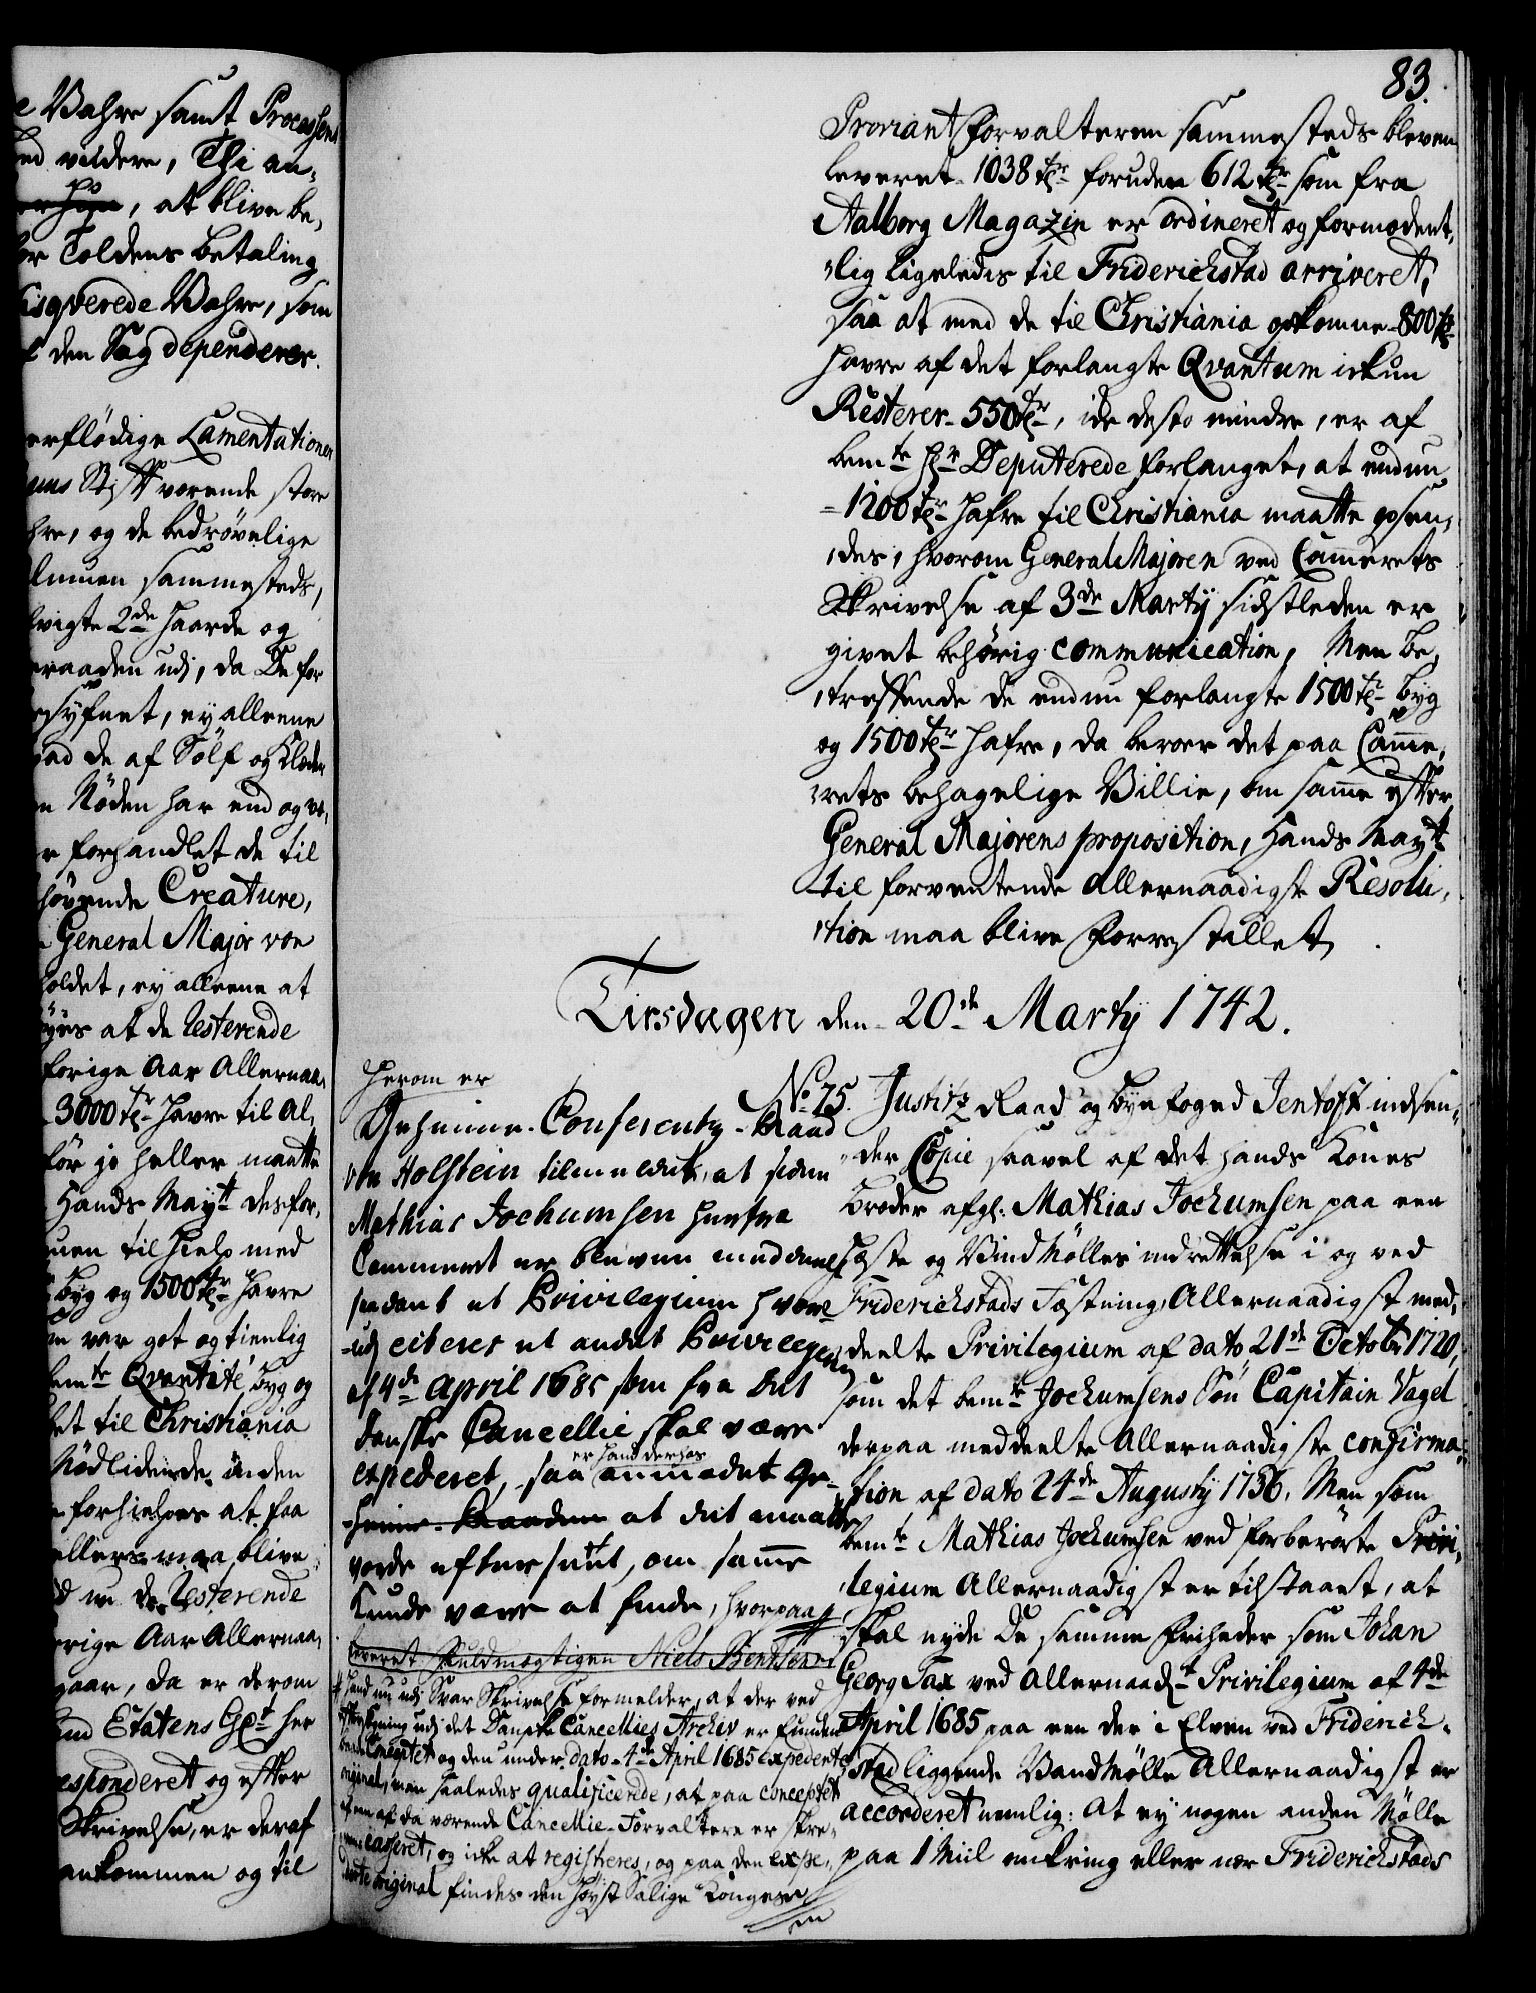 e Vahre samt Processens
ed videre, Thi an-
, at blive be-
or Toldens betaling
isqverede Vahre, som
den Sag dependerer.
erflødige Lamentationer
Stift værende store
hre, og de bedrøvelige
sammesteds,
vigte 2de haarde og
raaden udi, da De for
, ey alleene
ad de af Sölf og Klæder
n Nöden har end og
r forhandlet de til
hövende Creature,
General Major von
holdet, ey alleene at
öyes at de resterende
forige Aar Allernaa-
3000 tr. Havre til Al-
för jo heller maatte
Hands Maytt. derfor-
uen til hielp med
byg og 1500 tr. Havre
var got og tienlig
bemte Qvantité, byg og
et til Christiania
Nödlidende, uden
forhielpes at faa
ellers maa blive
d nu de resterende
rige Aar Allernaa-
gaar, da er derom
Land Etatens Gt. her
esponderet og efter
Skrivelse, er deraf
ankommen og til
83.
Proviantforvalteren sammesteds bleven
leveret 1038 tr. foruden 612 tr. som fra
Aalborg Magazin er ordineret og formodent-
-lig ligeledes til Friderichstad arriveret,
saa at med de til Christiania opkomne 800 tr.
Havre af det forlangte Qvantum ickun
Resterer 550 tr., ide desto mindre, er af
bemte Hr. Deputerede forlanget, at endnu
1200 tr. Hafre til Christiania maatte opsen-
-des, hvorom General Majoren ved Cammerets
Skrivelse af 3de Marty sidstleden er
givet behörig communication, Men be-
-treffende de endnu forlangte 1500 tr. byg
og 1500 tr. Hafre, da beroer det paa Camme-
-rets behagelige Villie, om samme efter
General Majorens proposition, Hands Maytt.
til forventende Allernaadigste Resolu-
-tion maa blive forrestillet.
Tirsdagen den 20de Marty 1742.
Herom er
Geheime-Conferentz-Raad
von Holstein tilmeldet, at siden
Mathias Jochumsen herfra
Cammeret er bleven meddeelt
saadant et Privilegium hvor-
-udj citeres et andet Privilegium
af 4de April 1685 som fra det
danske Cancellie skal være
expederet, saa er hand derhos anmodet Ge-
-heime-Raaden at det maatte
vorde eftterseet, om samme
kunde være at finde, hvorpaa
leveret Fuldmægtigen Niels Bentzen
Hand nu udj Svar Skrivelse formelder, at der ved
udj det Danske Cancellies Archiv er funden
Conceptet og den under dato 4de April 1685 expederte
original, men saaledes qualificerede, at paa conceptet
af en af da værende Cancellie-Forvaltere er skre-
casseret, og icke at registreres, og paa den expe-
original findes den Høyst Salige Konges
N. 75. Justitz Raad og Byefoged Jentoft indsen-
-der Copie saavel af det hands Kones
broder afg. Mathias Jochumsen paa een
Heste og Vind Mölles indrettelse i og ved
Friderichstads Fæstning, Allernaadigst med-
deelte Privilegium af dato 21de Octobr. 1720,
som det bemte Jochumsens Sön Capitain Vagel
derpaa meddeelte Allernaadigste confirma-
-tion af dato 24de Augusty 1736. Men som
bemte Mathias Jochumsen ved forberörte Privi-
-legium Allernaadigst er tilstaaet, at
skal nyde De samme friheder som Johan
Georg Fax ved Allernaadt. Privilegium af 4de
April 1685 paa een der i Elven ved Friderich-
stad liggende VandMölle Allernaadigst er
accorderet nemlig: At ey nogen anden Mölle
paa 1 Miil omkring eller nær Friderichstads